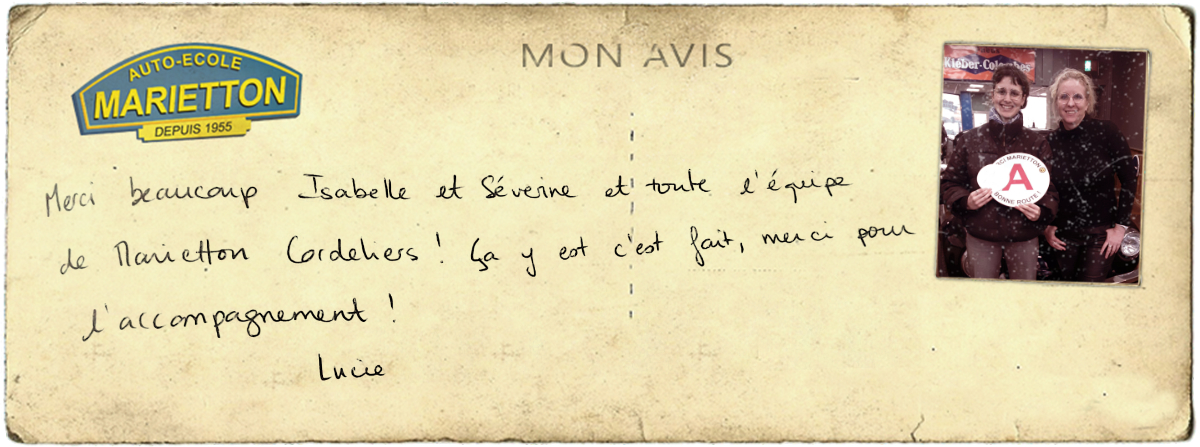 AUTO-ECOLE
MARIETTON
DEPUIS 1955
MON AVIS
Kleber-Colombes
Merci beaucoup Isabelle et Séverine et toute l'équipe
de Marietton Cordeliers ! Ça y est c'est fait, merci pour
l'accompagnement !
Lucie
MARIETTON
A
BONNE ROUTE !